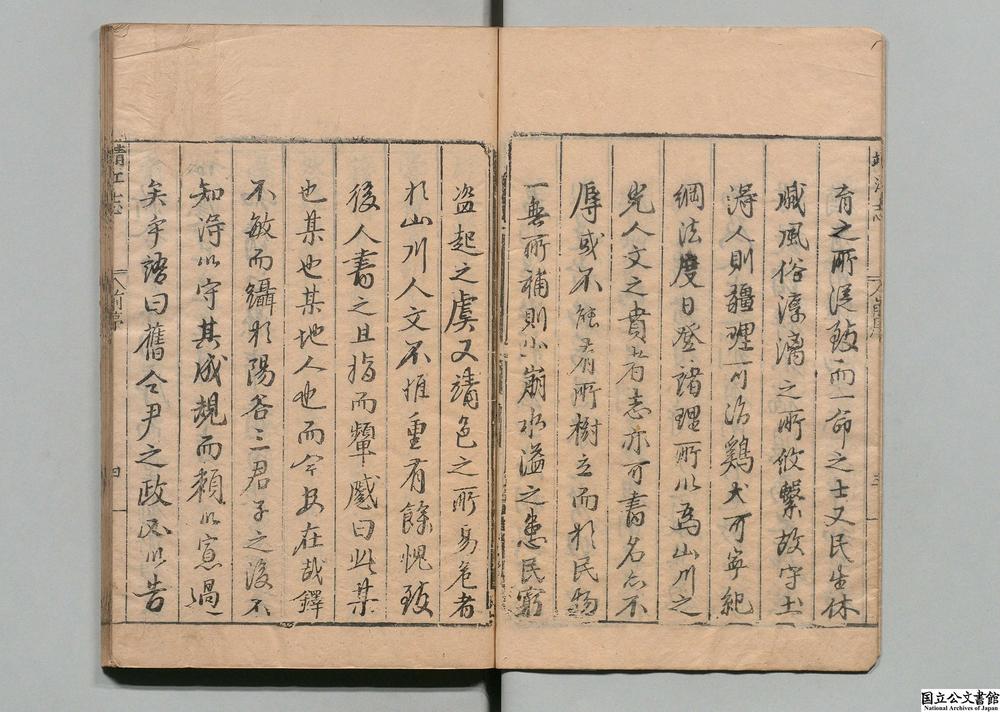 育之所從致而一命之士又民生休
戚風俗漓之所攸繫故守土
得人則疆理可治鷄犬可寧紀
綱法度日登諸理所以為山川之
光人文之賁者志亦可書名亦不
辱或不能有所樹立而於民物
一無所補則小崩水溢之患民窮
盗起之虞又靖邑之所易危者
於山川人文不惟重有餘愧致
後人書之且指而顰蹙曰此某
也某也某地人也而今安在哉鐸
不敏而躡於陽谷三君子之後不
知得以守其成規而賴以寡過
矣乎語曰舊令尹之政必以告
靖江志
前序
三
靖江志
前序
四
国立公文書館
National Archives of Japan